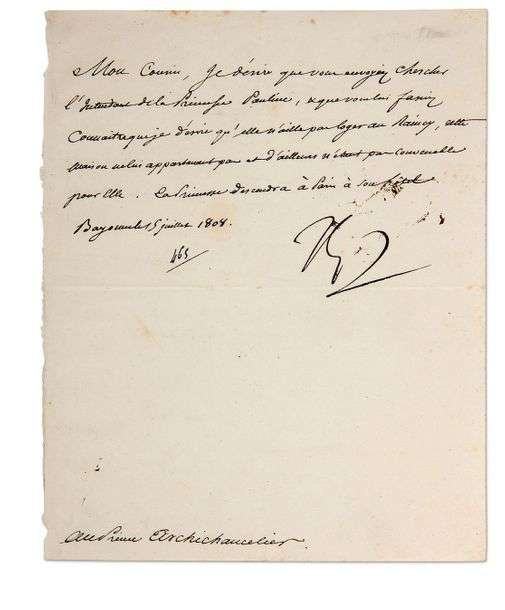 Mon Cousin, Je désire que vous envoyiez chercher
l'Intendant de la Princesse Pauline, & que vous lui fassiez
Connaitre que je désire qu'elle n'aille pas loger au Raincy, cette
maison ne lui appartenant pas et d'ailleurs n'étant pas convenable
pour Elle. La Princesse descendra à Paris à son hôtel
Bayonne le 15 juillet 1808.
465
Np
Au Prince Archichancelier.